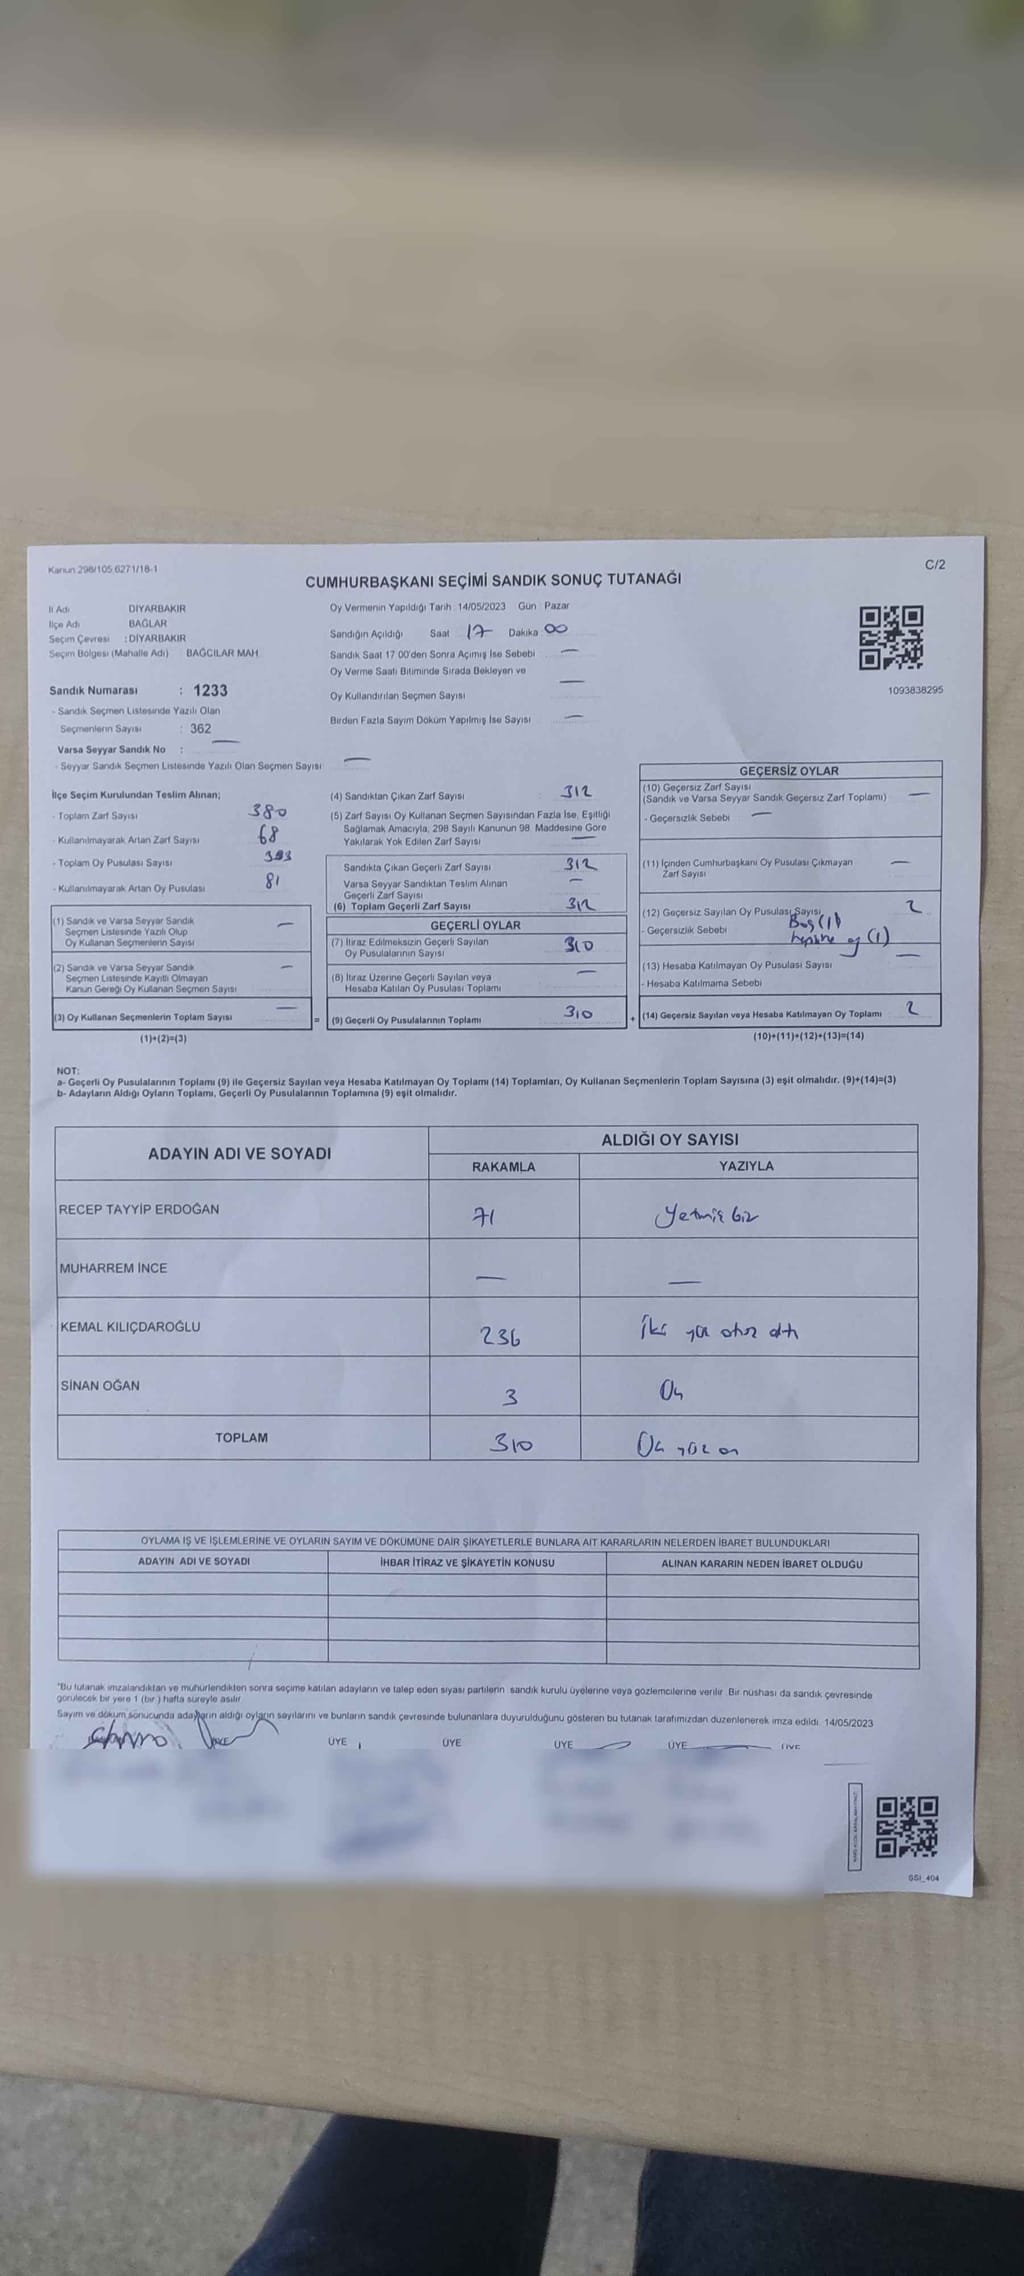 Kanun 298/105 6271/18-1
C/2
CUMHURBAŞKANI SEÇİMİ SANDIK SONUÇ TUTANAĞI
İl Adı DİYARBAKIR
İlçe Adı BAĞLAR
Seçim Çevresi : DİYARBAKIR
Seçim Bölgesi (Mahalle Adı) BAĞCILAR MAH.
Sandık Numarası : 1233
- Sandık Seçmen Listesinde Yazılı Olan
Seçmenlerin Sayısı : 362
Varsa Seyyar Sandık No : —
- Seyyar Sandık Seçmen Listesinde Yazılı Olan Seçmen Sayısı —
Oy Vermenin Yapıldığı Tarih : 14/05/2023 Gün : Pazar
Sandığın Açıldığı Saat 17 Dakika 00
Sandık Saat 17 00'den Sonra Açımış İse Sebebi —
Oy Verme Saati Bitiminde Sırada Bekleyen ve
Oy Kullandırılan Seçmen Sayısı —
Birden Fazla Sayım Döküm Yapılmış İse Sayısı —
1093838295
İlçe Seçim Kurulundan Teslim Alınan;
- Toplam Zarf Sayısı 380
- Kullanılmayarak Artan Zarf Sayısı 68
- Toplam Oy Pusulası Sayısı 393
- Kullanılmayarak Artan Oy Pusulası 81
(1) Sandık ve Varsa Seyyar Sandık
Seçmen Listesinde Yazılı Olup
Oy Kullanan Seçmenlerin Sayısı —
(2) Sandık ve Varsa Seyyar Sandık
Seçmen Listesinde Kayıtlı Olmayan
Kanun Gereği Oy Kullanan Seçmen Sayısı —
(3) Oy Kullanan Seçmenlerin Toplam Sayısı — =
(1)+(2)=(3)
(4) Sandıktan Çıkan Zarf Sayısı : 312
(5) Zarf Sayısı Oy Kullanan Seçmen Sayısından Fazla İse, Eşitliği
Sağlamak Amacıyla, 298 Sayılı Kanunun 98. Maddesine Göre
Yakılarak Yok Edilen Zarf Sayısı —
Sandıkta Çıkan Geçerli Zarf Sayısı 312
Varsa Seyyar Sandıktan Teslim Alınan
Geçerli Zarf Sayısı —
(6) Toplam Geçerli Zarf Sayısı 312
GEÇERLİ OYLAR
(7) İtiraz Edilmeksizin Geçerli Sayılan
Oy Pusulalarının Sayısı 310
(8) İtiraz Üzerine Geçerli Sayılan veya
Hesaba Katılan Oy Pusulası Toplamı —
(9) Geçerli Oy Pusulalarının Toplamı 310 +
GEÇERSİZ OYLAR
(10) Geçersiz Zarf Sayısı
(Sandık ve Varsa Seyyar Sandık Geçersiz Zarf Toplamı) —
- Geçersizlik Sebebi —
(11) İçinden Cumhurbaşkanı Oy Pusulası Çıkmayan
Zarf Sayısı —
(12) Geçersiz Sayılan Oy Pusulası Sayısı 2
- Geçersizlik Sebebi Boş (1)
(1)
(13) Hesaba Katılmayan Oy Pusulası Sayısı —
- Hesaba Katılmama Sebebi
(14) Geçersiz Sayılan veya Hesaba Katılmayan Oy Toplamı 2
(10)+(11)+(12)+(13)=(14)
NOT:
a- Geçerli Oy Pusulalarının Toplamı (9) ile Geçersiz Sayılan veya Hesaba Katılmayan Oy Toplamı (14) Toplamları, Oy Kullanan Seçmenlerin Toplam Sayısına (3) eşit olmalıdır. (9)+(14)=(3)
b- Adayların Aldığı Oyların Toplamı, Geçerli Oy Pusulalarının Toplamına (9) eşit olmalıdır.
ADAYIN ADI VE SOYADI
ALDIĞI OY SAYISI
RAKAMLA YAZIYLA
RECEP TAYYİP ERDOĞAN 71 Yetmiş bir
MUHARREM İNCE — —
KEMAL KILIÇDAROĞLU 236 İki yüz otuz altı
SİNAN OĞAN 3 Üç
TOPLAM 310 Üç yüz on
OYLAMA İŞ VE İŞLEMLERİNE VE OYLARIN SAYIM VE DÖKÜMÜNE DAİR ŞİKAYETLERLE BUNLARA AİT KARARLARIN NELERDEN İBARET BULUNDUKLARI
ADAYIN ADI VE SOYADI İHBAR İTİRAZ VE ŞİKAYETİN KONUSU ALINAN KARARIN NEDEN İBARET OLDUĞU
"Bu tutanak imzalandıktan ve mühürlendikten sonra seçime katılan adayların ve talep eden siyasi partilerin sandık kurulu üyelerine veya gözlemcilerine verilir. Bir nüshası da sandık çevresinde
görülecek bir yere 1 (bir) hafta süreyle asılır.
Sayım ve döküm sonucunda adayların aldığı oyların sayılarını ve bunların sandık çevresinde bulunanlara duyurulduğunu gösteren bu tutanak tarafımızdan düzenlenerek imza edildi. 14/05/2023
ÜYE ÜYE ÜYE ÜYE ÜYE
GSI_404